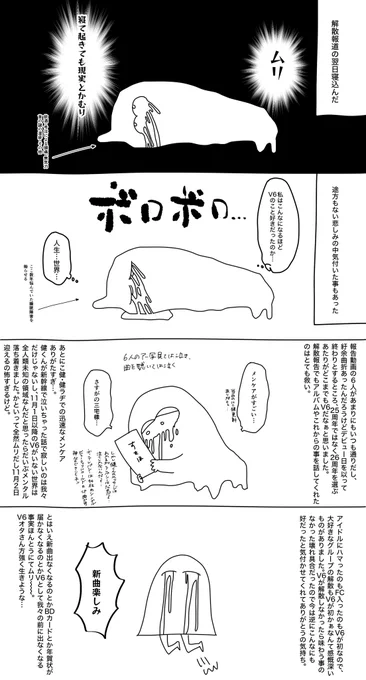 解散報道の翌日寝込んだ
ムリ
寝て起きても現実とかむり
途方もない悲しみの中気付いた事もあった
私はこんなになるほど
V6のこと好きだったのか…
ボロボロ…
人生…世界…
報告動画の6人があまりにもいつも通りだし、
好余曲折あったんだろうけどデビュー日を以って
終わりとするところ、25周年ではなく26周年を選ぶ
あたりがどこまでもV6だなぁと思いました。
解散報告でもアルバムやこれからの事を話してくれた
のはとても救い。
メンケアがすごい…
さすがの三宅様…
あとにこ健・健ラヂでの迅速なメンケア
ありがたすぎ…。
健くんが新幹線で泣いちゃった話で寂しいのは我々
だけじゃないし、11月1日以降のV6がいない世界は
全人類未知の領域なんだと思ったらだいぶメンタル
落ち着きました。かといって全然ムリだし11月2日
迎えるの怖すぎるけど。
アイドルにハマったのもFC入ったのもV6が初なので、
大好きなグループの解散もV6が初かぁなんて感慨深い
ものがありました。V6が解散しなかったら味わう事の
なかった壊れ具合だったので今は逆にこんなにも
好だったと気付かせてくれてありがとうの気持ち。
新曲楽しみ
とはいえ新曲出なくなるのとかBD
カードとか年賀状が
届かなくなるのとかV6として我々の前に出なくなる
事実ほんとうにてムリ〜〜〜。
V6オタさん方強く生きような…